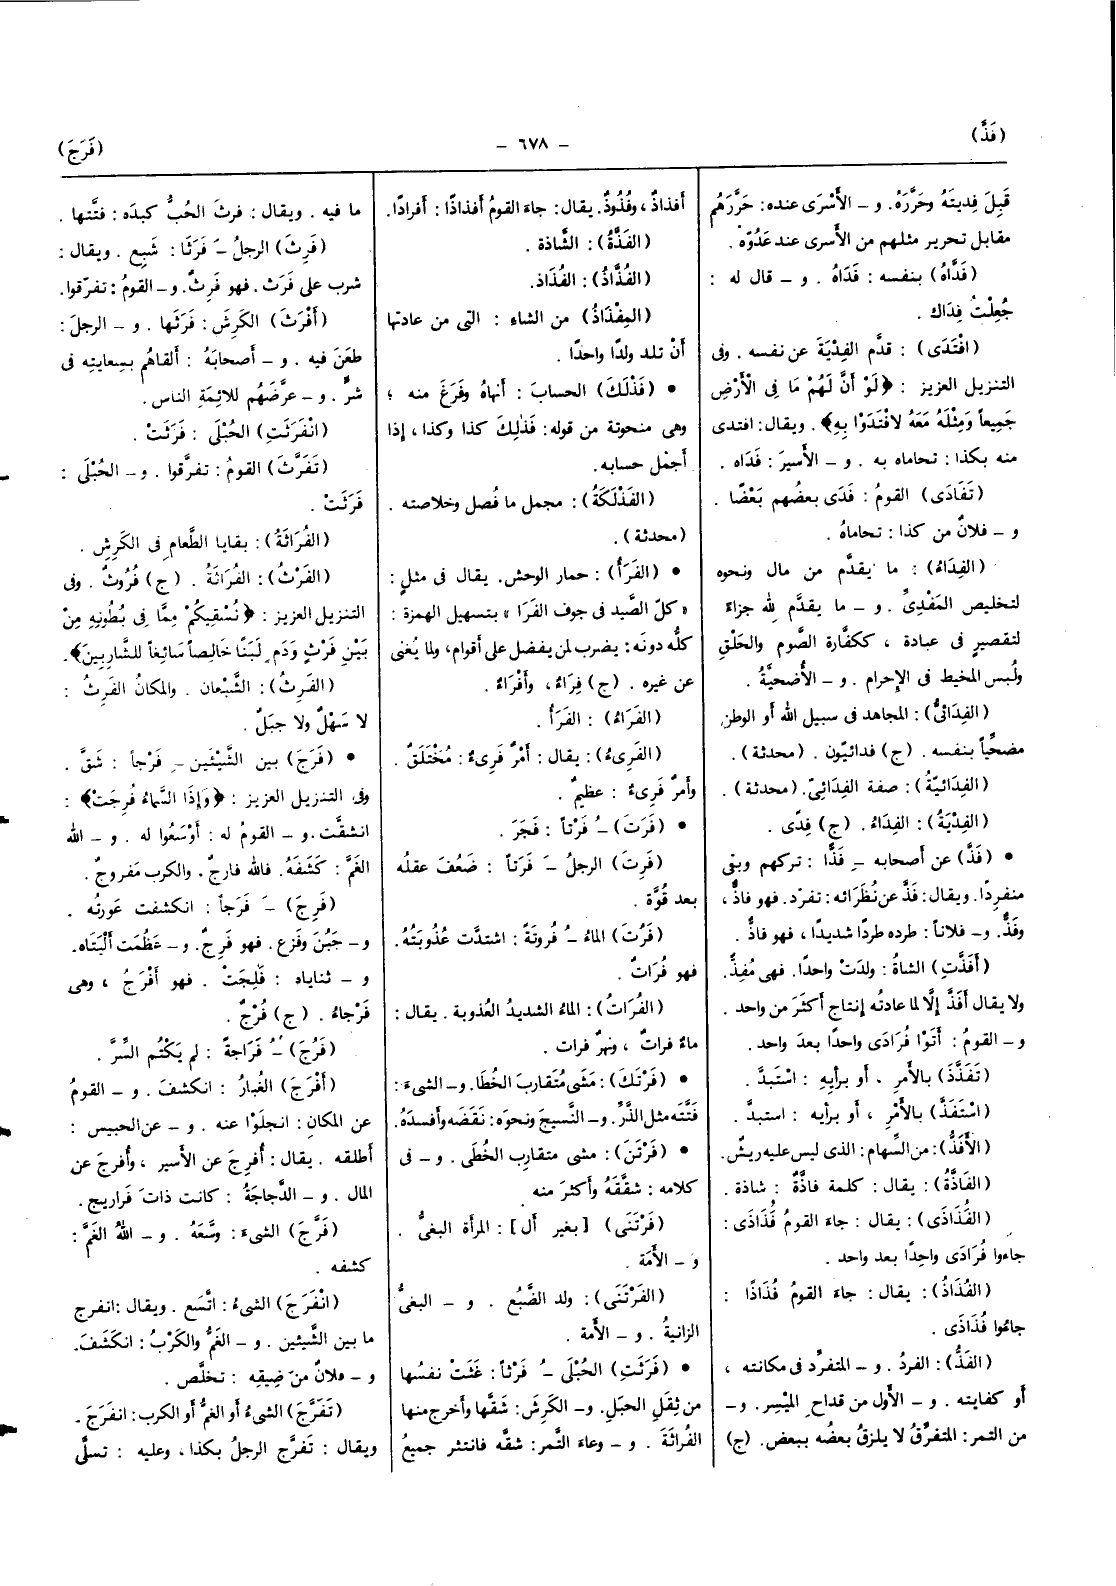 (فَذَّ)
- ٦٧٨ -
(فَرَجَ)
قَبِلَ فِديتَهُ وحَرَّرَهُ. و – الأَسْرَى عنده: حَرَّرَهُم
مقابل تحرير مثلهم من الأَسرى عند عَدُوّه .
(فَدَّاهُ) بنفسه : فَدَاهُ . و – قال له :
جُعِلْتُ فِدَاك .
(افْتَدَى) : قدَّم الفِدْيَةَ عن نفسه . وفى
التنزيل العزيز : ﴿لَوْ أَنَّ لَهُمْ مَا فِى الْأَرْضِ
جَمِيعاً وَمِثْلَهُ مَعَهُ لافْتَدَوْا بِهِ﴾ . ويقال: افتدى
منه بكذا : تحاماه به . و – الأَسيرَ : فَدَاه .
(تَفَادَى) القومُ : فَدَى بعضُهم بَعْضًا .
و – فلانٌ من كذا : تحاماهُ .
(الفِدَاءُ) : ما يقدَّم من مال ونحوه
لتخليص المَفْدِىِّ . و – ما يقدَّم لله جزاءً
لتقصيرٍ فى عبادة ، ككفَّارة الصَّوم والحَلْقِ
ولُبس المخيط فى الإحرام . و – الأُضحيَّةُ .
(الفِدَائىُّ) : المجاهد فى سبيل الله أو الوطن
مضحِّياً بنفسه . (ج) فدائيّون . (محدثة) .
(الفِدَائيّةُ) : صفة الفِدَائىّ. (محدثة) .
(الفِدْيَةُ) : الفِدَاءُ. (ج) فِدًى .
• (فَذَّ) عن أصحابه ـِ فَذًّا : تركهم وبقى
منفردًا. ويقال: فَذَّ عن نُظَرَائه: تفرّد. فهو فاذٌّ ،
وفَذٌّ. و– فلاناً: طرده طردًا شديدًا ، فهو فاذٌّ .
(أَفَذَّتِ) الشاةُ : ولدَتْ واحدًا. فهى مُفِذٌّ.
ولا يقال أَفَذَّ إلَّا لما عادتُه إنتاج أكثَرَ من واحد .
و– القومُ : أَتَوْا فُرَادَى واحدًا بعدَ واحد.
(تَفَذَّذَ) بالأَمرِ . أو برأيِهِ : اسْتَبدَّ .
(اسْتَفَذَّ) بالأَمْرِ ، أو برأيه : استبدَّ .
(الأَفَذُّ): من السِّهام: الذى ليس عليه ريشٌ.
(الفَاذَّةُ) : يقال : كلمة فاذَّةٌ : شاذة .
(الفُذَاذَى) : يقال : جاءَ القومُ فُذَاذَى :
جاءوا فُرَادَى واحِدًا بعد واحد .
(الفُذَاذُ) : يقال: جاءَ القومُ فُذَاذًا :
جاءُوا فُذَاذَى .
(الفَذُّ) : الفردُ . و – المتفرِّد فى مكانته ،
أو كفايته . و – الأول من قداح المَيْسِر . و–
من التمر: المتفرِّقُ لا يلزقُ بعضُه ببعض. (ج)
أَفذاذٌ ، وفُذُوذٌ. يقال: جاءَ القومُ أفذاذًا : أفرادًا.
(الفَذَّةُ) : الشَّاذة .
(الفُذَّاذُ) : الفُذَاذ.
(المِفْذَاذُ) من الشاء : التى من عادتها
أنْ تلد ولدًا واحدًا .
• (فَذْلَكَ) الحسابَ : أَنهاهُ وفَرَغَ منه ؛
وهى منحوتة من قوله: فَذَلِكَ كذا وكذا ، إذا
أجمل حسابه.
(الفَذْلَكَةُ) : مجمل ما فُصل وخلاصته .
(محدثة).
• (الفَرَأُ) : حمار الوحش. يقال فى مثلٍ :
« كلّ الصَّيد فى جوف الفَرَا » بتسهيل الهمزة :
كلُّه دونَه: يضرب لمن يفضل على أقوام، ولما يُغنى
عن غيره . (ج) فِرَاءٌ ، وأَفْرَاءٌ .
(الفَرَاءُ) : الفَرَأُ .
(الفَرِىءُ) : يقال : أَمْرٌ فَرِىءٌ : مُخْتَلَقٌ .
وأَمرٌ فَرِىءٌ : عظيمٌ .
• (فَرَتَ) ـُ فَرْتاً : فَجَرَ .
(فَرِتَ) الرجلُ ـَ فَرَتاً : ضَعُفَ عقلُه
بعد قُوَّة .
(فَرُتَ) الماءُ ـُ فُروتَةً : اشتدَّت عُذُوبَتُهُ.
فهو فُرَاتٌ .
(الفُرَاتُ) : الماءُ الشديدُ العُذوبة . يقال :
ماءٌ فراتٌ ، ونهرٌ فرات .
• (فَرْتَكَ) : مَشَى مُتَقَاربَ الخُطَا. و– الشىءَ :
فَتَّتَه مثل الذَّرِّ. و– النَّسيجَ ونحوَه: نَقَضَه وأفسدَهُ.
• (فَرْتَنَ) : مشى متقاربَ الخُطَى . و – فى
كلامه : شقَّقَهُ وأكثرَ منه
(فَرْتَنَى) [ بغير أل ] : المرأة البغىُّ .
و – الأَمَة .
(الفَرْتَنَى) : ولد الضَّبُع . و – البغىُّ
الزانيةُ . و – الأَمة .
• (فَرَثَتِ) الحُبْلَى ـُ فَرْثاً : غَثَتْ نفسُها
من ثِقَلِ الحبَل. و– الكَرِشَ: شَقَّها وأخرج منها
الفُراثَةَ . و – وعاءَ التَّمر: شقَّه فانتثر جميعُ
ما فيه . ويقال : فرثَ الحُبُّ كبدَه : فتَّتها .
(فَرِثَ) الرجلُ ـَ فَرَثًا : شَبِع . ويقال :
شرب على فَرَث. فهو فَرِثٌ. و– القومُ : تفرّقوا.
(أَفْرَثَ) الكَرِشَ : فَرَثَها . و – الرجلَ :
طَعَنَ فيه . و – أصحابَهُ : أَلقاهُم بِسِعايتِه فى
شرٍّ . و – عرَّضَهُم للائِمَةِ الناس.
(انْفَرَثَتِ) الحُبْلَى : فَرَثَتْ .
(تَفَرَّثَ) القومُ : تفرَّقوا . و– الحُبْلَى :
فَرَثَتْ .
(الفُرَاثَةُ) : بقايا الطَّعامِ فى الكَرِشِ .
(الفَرْثُ) : الفُرَاثَةُ . (ج) فُرُوثٌ . وفى
التنزيل العزيز : ﴿نُسْقِيكُمْ مِمَّا فِى بُطُونِهِ مِنْ
بَيْنِ فَرْثٍ وَدَمٍ لَبَنًا خَالِصاً سَائِغاً لِلشَّارِبِينَ﴾.
(الفَرِثُ) : الشَّبْعان . والمكانُ الفَرِثُ :
لا سَهْلٌ ولا جبَلٌ .
• (فَرَجَ) بين الشَّيْئَين ـِ فَرْجاً : شَقَّ .
وفى التنزيل العزيز : ﴿وَإِذَا السَّمَاءُ فُرِجَتْ﴾ :
انشقَّت. و – القومُ له : أَوْسَعُوا له . و – الله
الغَمَّ : كَشَفَهُ. فالله فارجٌ. والكرب مَفروجٌ .
(فَرِجَ) ـَ فَرَجاً : انكشفت عَورتُه .
و– جَبُنَ وفَزِع. فهو فَرِجٌ. و– عَظُمَت أَلْيَتَاه.
و – ثناياه : فَلِجَتْ . فهو أَفْرَجُ ، وهى
فَرْجَاءُ . (ج) فُرْجٌ .
(فَرُجَ) ـُ فَرَاجةً : لم يَكْتُم السِّرَّ .
(أَفْرَجَ) الغُبارُ : انكشفَ . و – القومُ
عن المكانِ : انجلَوْا عنه . و – عن الحبيس :
أطلقه . يقال : أُفرِجَ عن الأسير ، وأُفرجَ عن
المال . و – الدَّجاجَةُ : كانت ذاتَ فَراريج .
(فَرَّجَ) الشىءَ : وسَّعَهُ . و – اللهُ الغَمَّ :
كشفه .
(انْفَرَجَ) الشىءُ : اتَّسَع . ويقال : انفرج
ما بين الشَّيئين . و – الغَمُّ والكَرْبُ : انكَشَفَ.
و – فلانٌ من ضِيقِه : تخلَّص .
(تَفَرَّجَ) الشىءُ أو الغمُّ أو الكرب: انفَرَجَ .
ويقال : تَفرَّج الرجلُ بكذا ، وعليه : تسلَّى